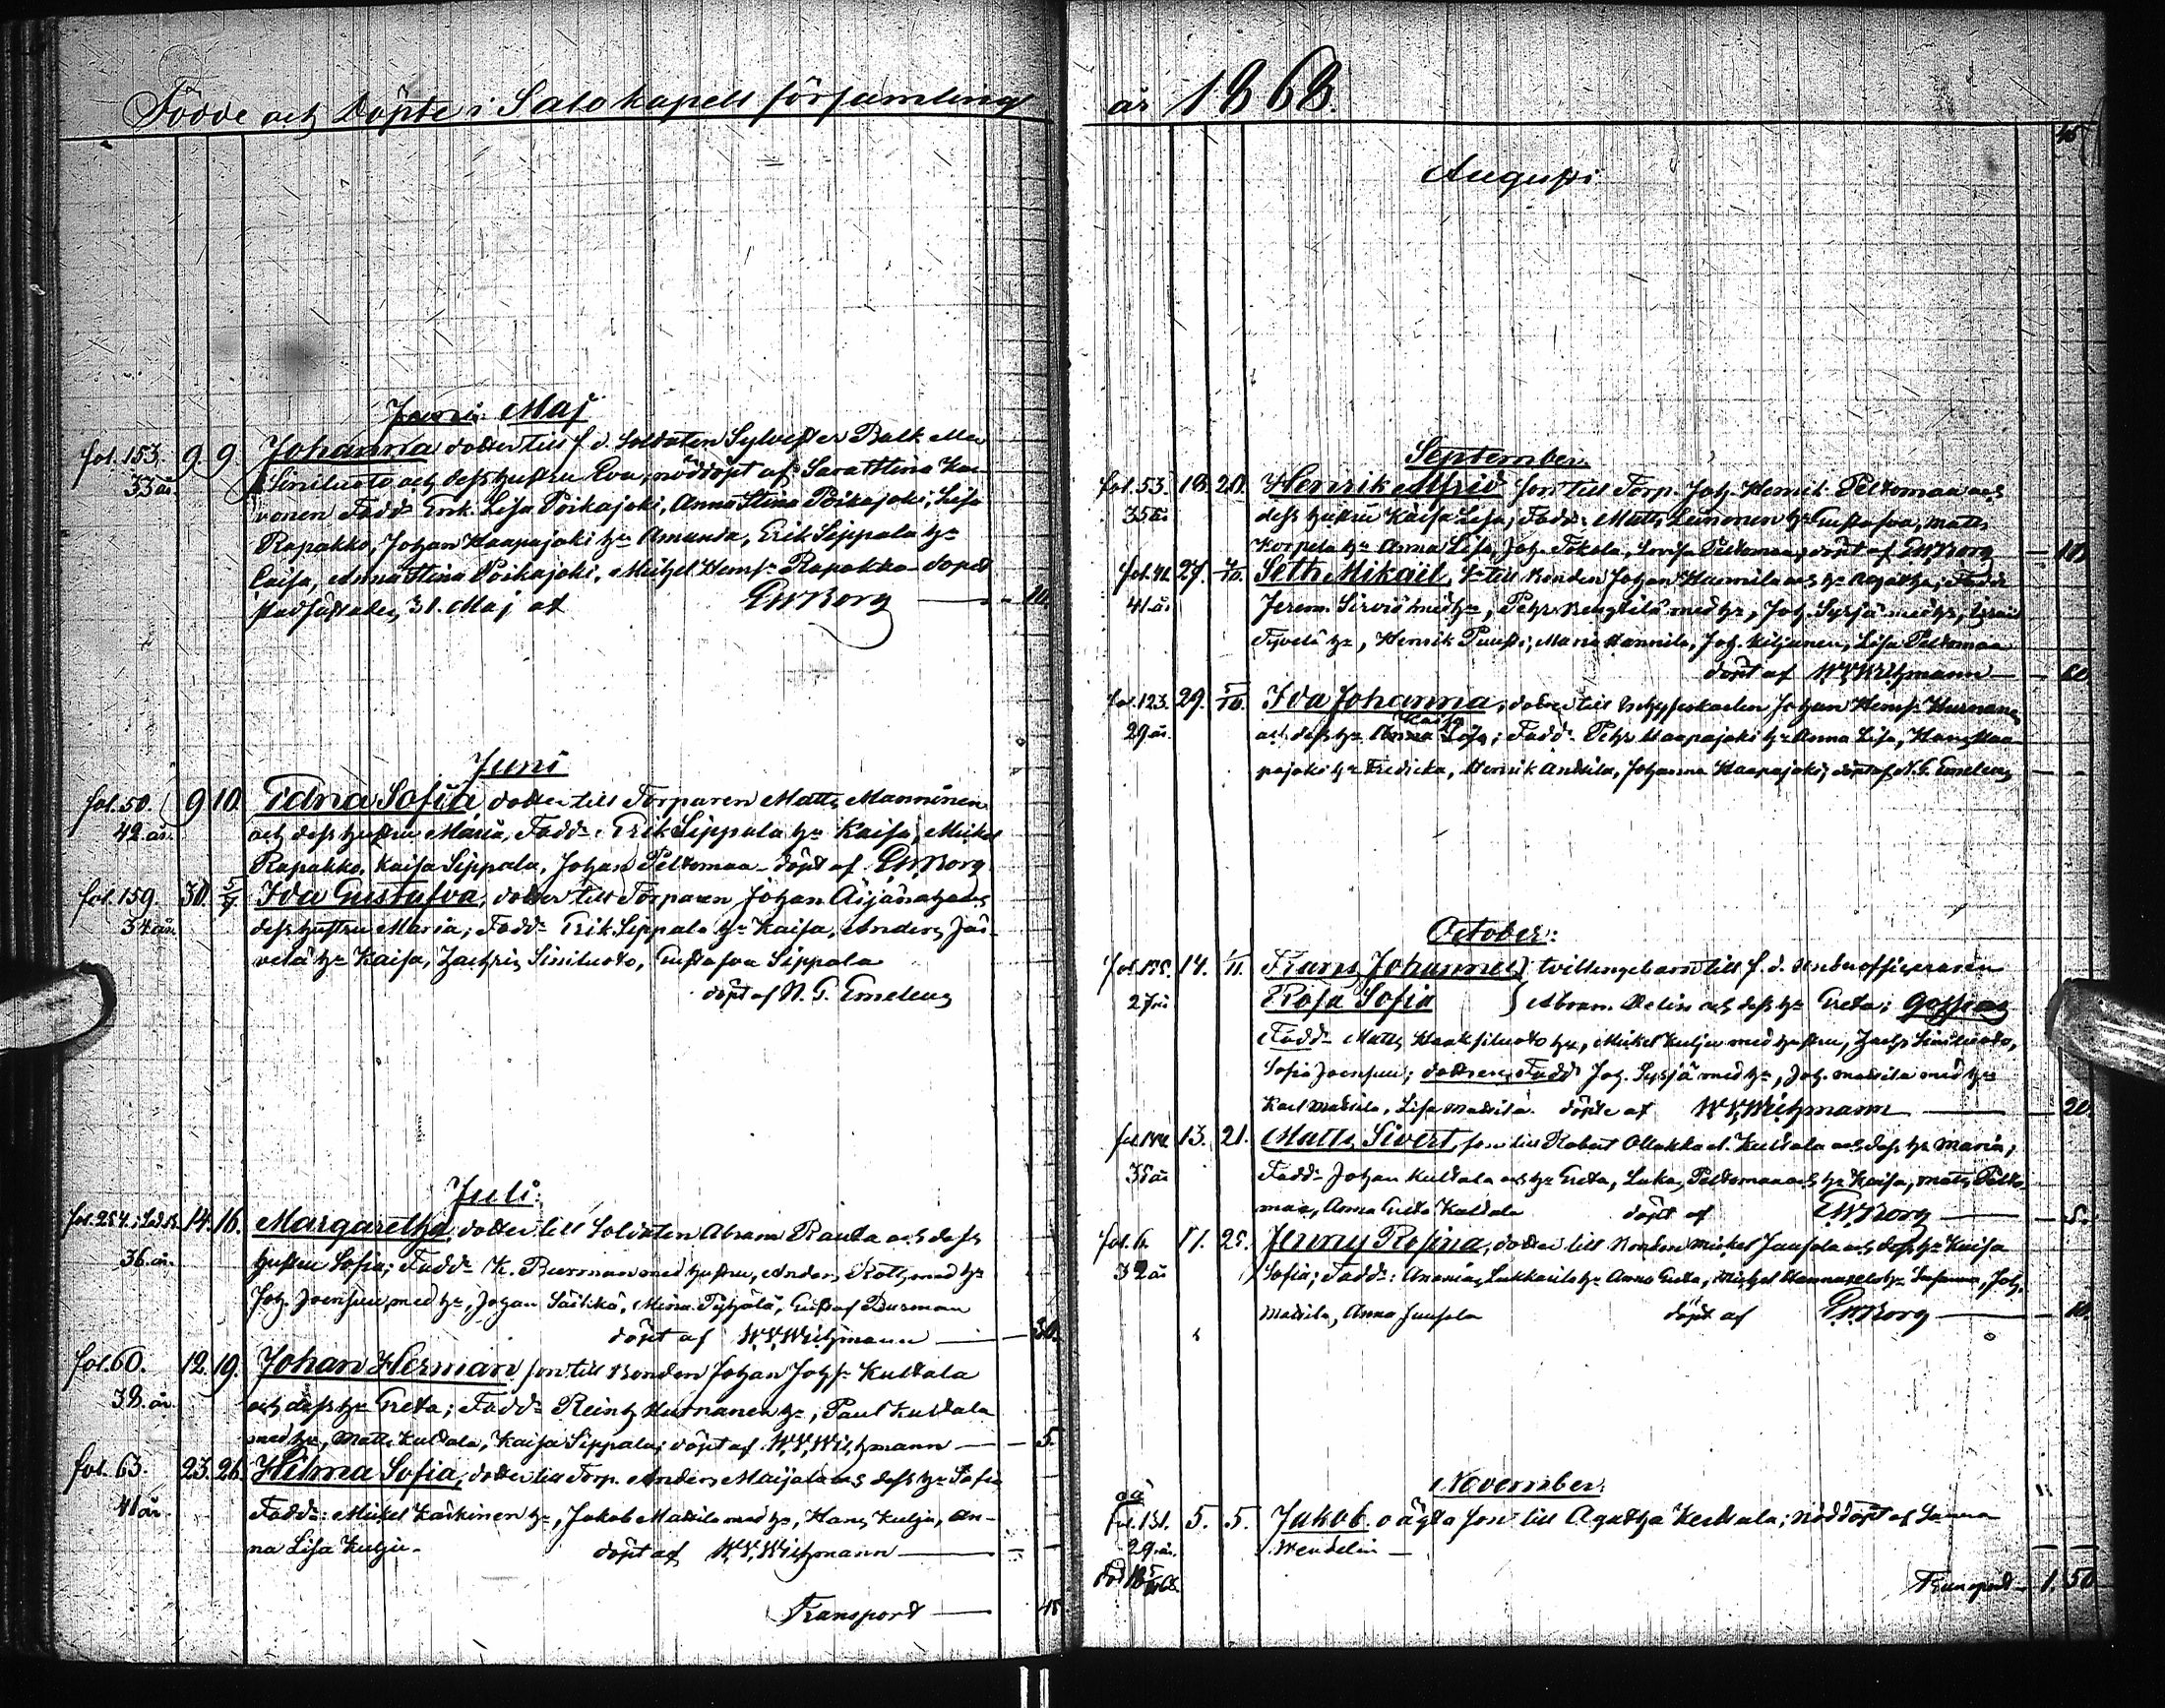 Födde och Döpte i Salo kapell församling
Maj
fol. 153. 9. 9. Johanna dotter till f. d. Soldaten Sylvester Balk
33 år Siniluoto och dess hustru Eva, nöddöpt af Sara Stina
Fadd. Erik Lisa Poikajoki, Anna Stina Poikajoki, Lisa
Rapakko, Johan Haapajoki hu Amanda, Erik Sippala hu
Caisa, Anna Stina Poikajoki, Michel Rapakko döpt
31. Maj af EWBorg 10.
Juni
fol. 50. 9 10. Edna Sofia dotter till Torparen Matts Manninen
42. år. och dess hustru Maria, Fadd. Erik Sippala hu Kaisa, Mickel
Rapakko, Kaisa Sippala, Johan Peltomaa döpt af EWBorg
fol. 159. 30. 5/7 Ida Gustafva, dotter till Torparen Johan Äijänaho och
34 år. dess hustru Maria; Fadd. Erik Sippala hu Kaisa, Anders Jär-
velä hu Kaisa, Zachris Siniluoto, Gustafva Sippala
döpt af N. G. Emeleus
Juli.
fol. 254. 14. 16. Margaretha, dotter till Soldaten Abram Rauta och dess
36. år. hustru Sofia; Fadd. K. Burman med hustru, Anders Rott med hu
Joh. Joensuu med hu, Johan Säilikä, Mina Tyhjälä, Gustaf Burman
döpt af W. W. Wichmann 30.
fol. 60. 12. 19. Johan Herman son till Bonden Johan Johss. Kultala
38. år. och dess hu Greta; Fadd. Reinh. Hurnanen hu, Paul Kultala
med hu, Matts Kultala, Kaisa Sippala; döpt af W. W. Wichmann 5.
fol. 63. 23. 26. Hilma Sofia, dotter till Torp. Anders Maijala och dess hu Sofia
41 år. Fadd.: Mickel Käikinen hu, Jakob Mattila med hu, Hans Kulju, An-
na Lisa Kulju. döpt af W. W. Wichmann
Transport 45
år 1868.
45
Augusti
September.
fol. 53. 18. 20. Henrik Alfrid son till Torp. Joh. Henrik Peltomaa och
35 år dess hustru Kaisa Lisa; Fadd. Matts Leinonen hu Gustafva, Matts
Korpela hu Anna Lisa, Joh. Tokola, Lovisa Peltomaa, döpt af EWBorg
27. Seth Mikaël, s. till Bonden Johan Haimila och hu Agatha; Fadd.
41. år Jerem. Sirviö med hu, Pehr Bengtilä med hu, Joh. Syrjä med hu,
hu, Henrik Puusti, Maria Hannila, Joh. Kiljunen, Lisa Peltomaa
döpt af W. W. Wichmann
fol. 123. 29. Ida Johanna, dotter till Johan Hurnanen
29 år. och dess hu Kaisa Lisa; Fadd. Pehr Haapajoki hu Anna Lisa, Hans Haa-
pajoki hu Fredrika, Henrik Anttila, Johanna Haapajoki; döpt af N. G. Emeleus
October:
14. Frans Johannes } tvillingebarn till f. d. Underofficeraren
27 år Rosa Sofia } Abram Velin och dess hu Greta; gossens
Fadd. Matts Haaksiluoto hu, Mickel Kulju med hustru, Zachr. Siniluoto,
Sofia Joensuu; dottrens Fadd. Joh. Syrjä med hu, Joh. Mattila med hu
Karl Mattila, Lisa Mattila. döpte af W. W. Wichmann 20.
13. 21. Matts Sivert, son till Robert Ollakka l. Kultala och dess hu Maria;
35 år Fadd. Johan Kultala och hu Greta, Lukas Peltomaa och hu Kaisa, Matts Pelto-
maa, Anna Greta Kultala döpt af EWBorg 5.
fol. 6. 25. Jenny Rosina, dotter till Bonden Mickel Juusola och dess hu Kaisa
32 år Sofia; Fadd.: Ananias Lukkarila hu Anna Greta, Michel Hannuxela hu Susanna, Joh.
Mattila, Anna Juusola döpt af EWBorg
November.
oä
fol. 131. 5. 5. Jakob oägta son till Agatha Kultala; nöddöpt af Sanna
29. år. Wendelin
död
Transport 1. 50